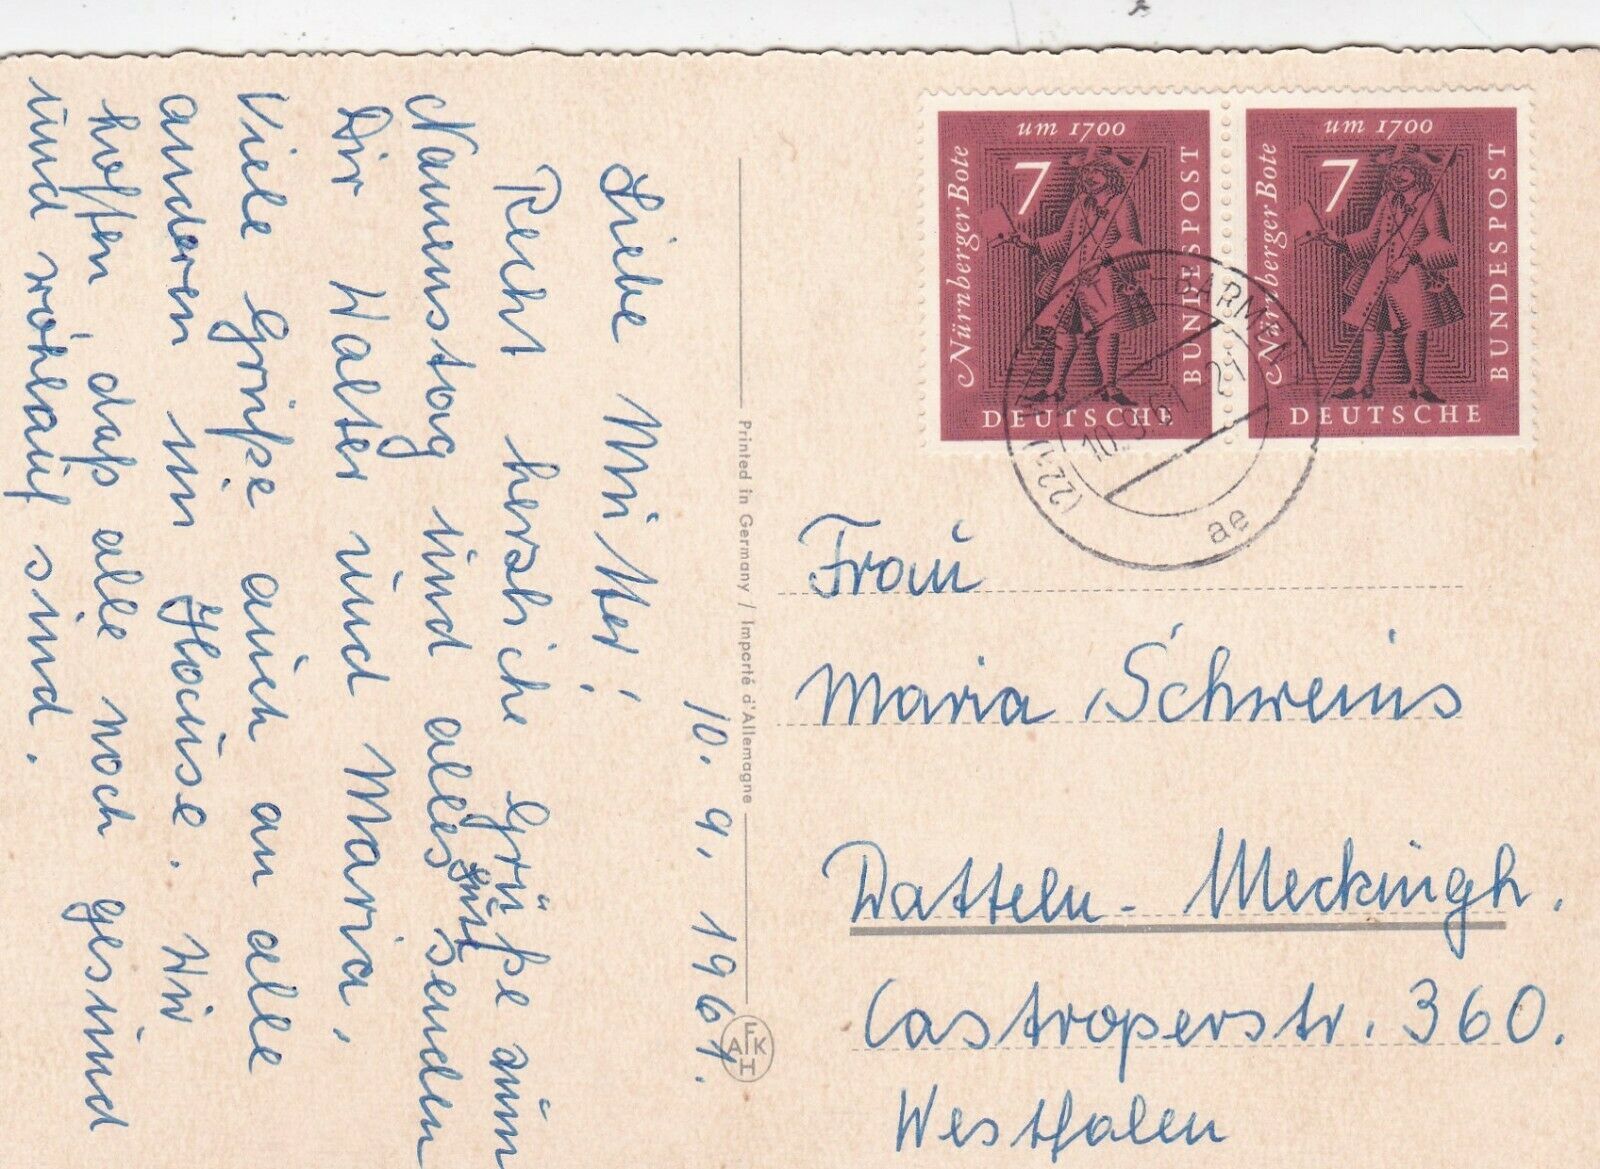 10. 9. 1961.
Liebe Mutter!
Recht herzliche Grüße zum
Namenstag und alles Gute senden
Dir Walter und Maria.
Viele Grüße auch an alle
anderen im Hause. Wir
hoffen daß alle noch gesund
und wohlauf sind.
Printed in Germany / Importé d'Allemagne
AFKH
um 1700
7
Nürnberger Bote
DEUTSCHE
BUNDESPOST
um 1700
7
Nürnberger Bote
DEUTSCHE
BUNDESPOST
(22
10. 9. 61. 21
ae
Frau
Maria Schweins
Datteln - Meckingh.
Castroperstr. 360.
Westfalen